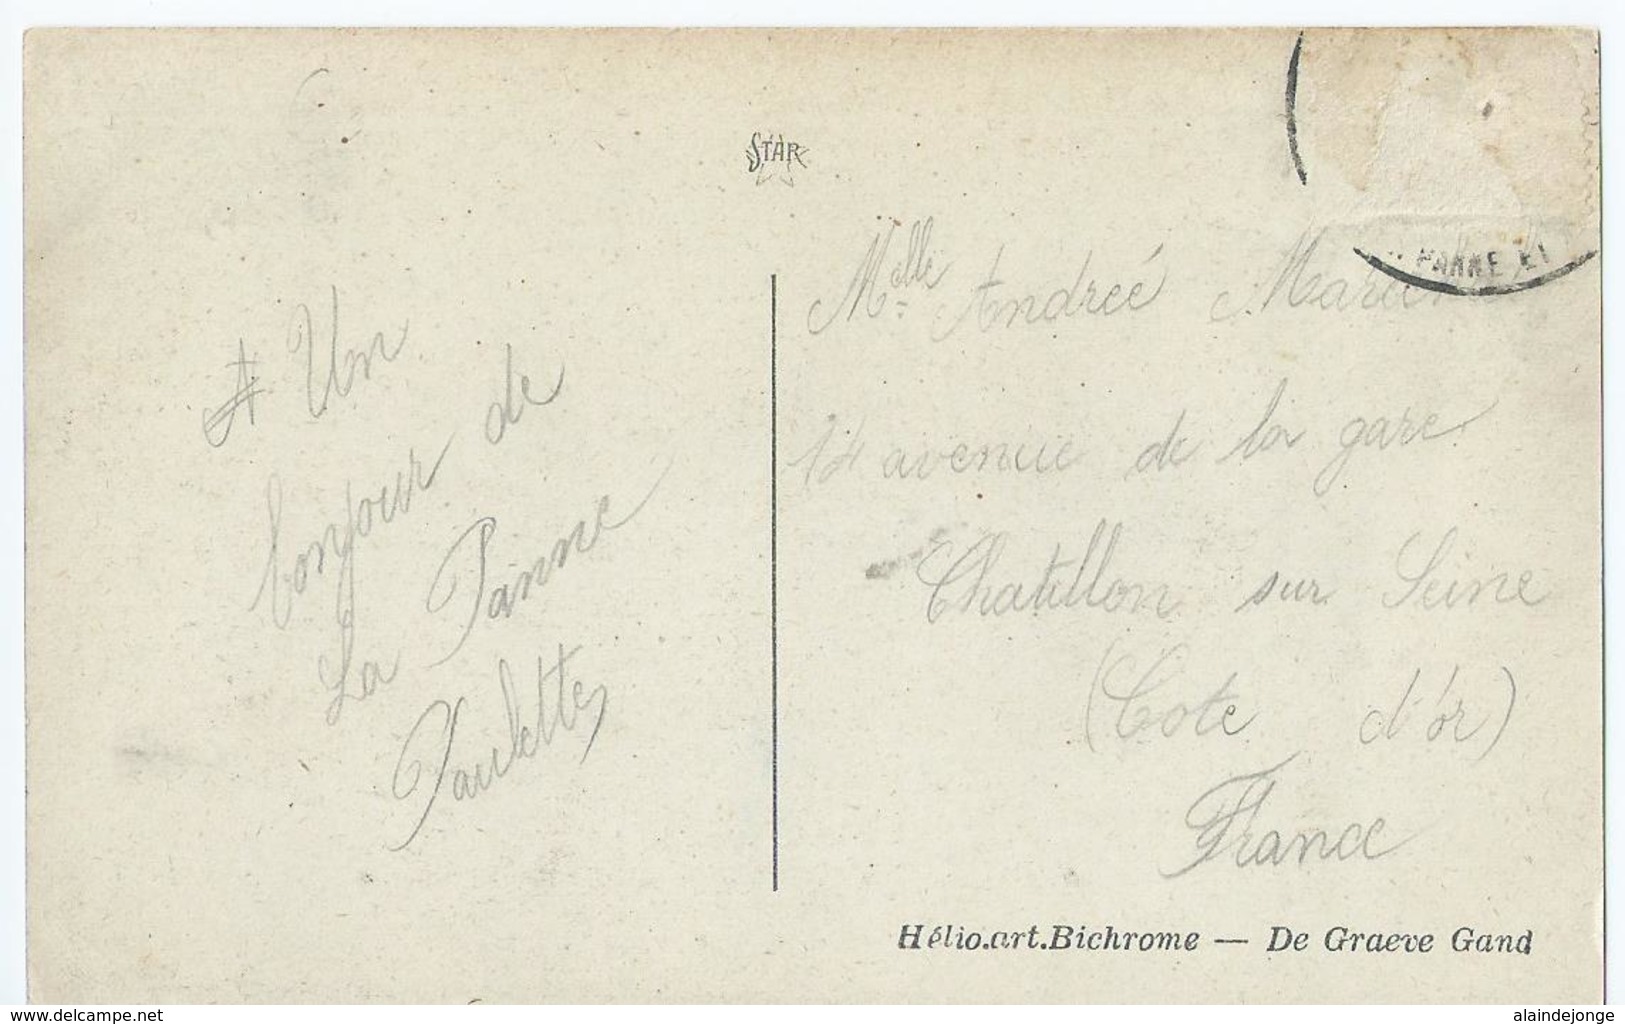 STAR
PANNE
Un
bonjour de
La Panne
Paulette
Melle Andreé
14 avenue de la gare
Chatillon sur Seine
(Cote d'or)
France
Hélio.art.Bichrome — De Graeve Gand
www.delcampe.net
alaindejonge